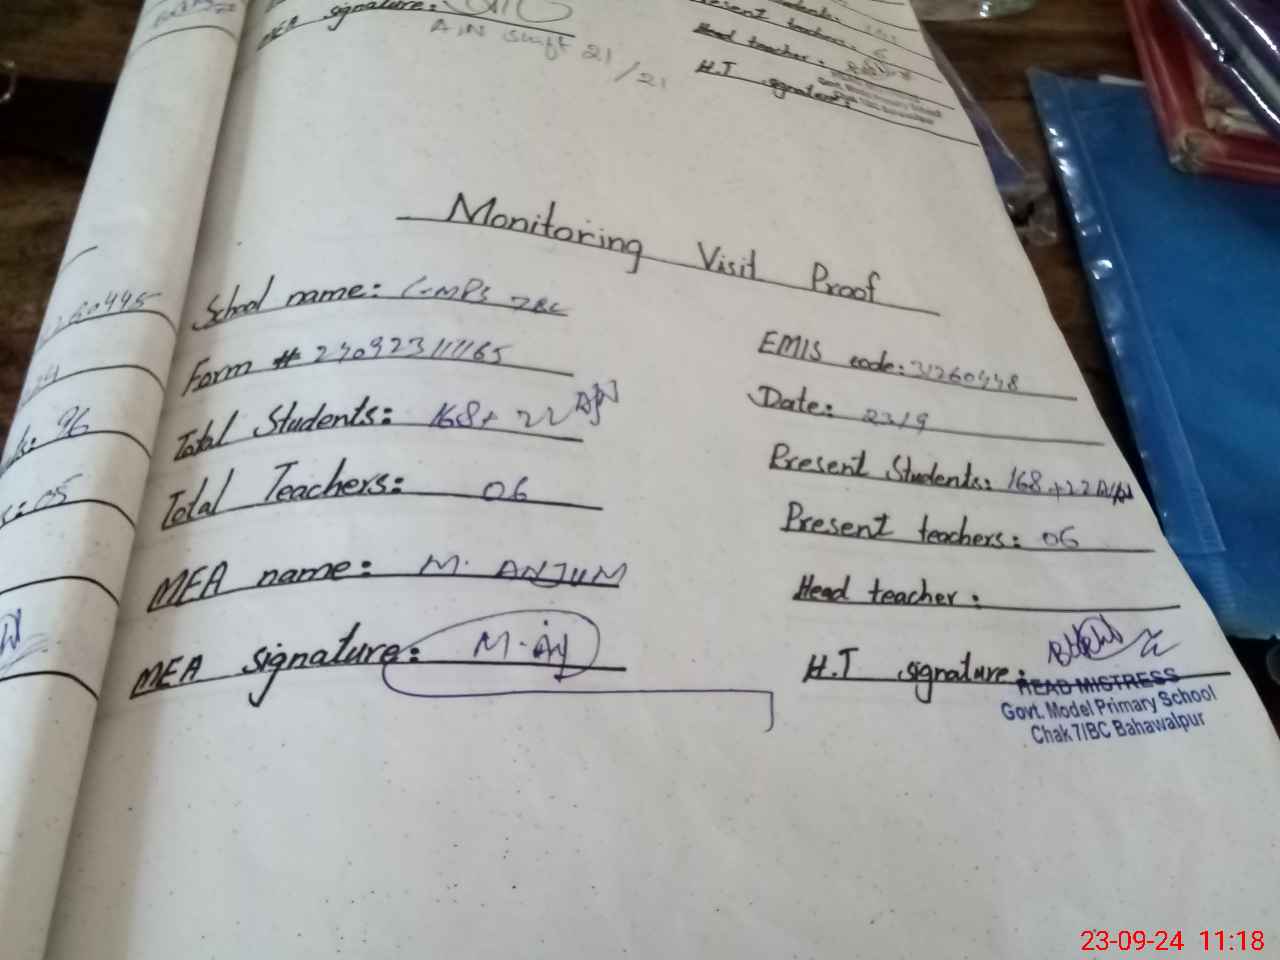 MEA signature:
A/N shift 21/21
Present teachers: 6
Head teacher:
H.T signature:
Monitoring Visit Proof
School name: GMPS 7BC
EMIS code: 31260448
Form # 240923111165
Date: 23/9
Total Students: 168+22 A/N
Present Students: 168+22 A/N
Total Teachers: 06
Present teachers: 06
MEA name: M. ANJUM
Head teacher:
MEA signature: M.
H.T signature:
HEAD MISTRESS
Govt. Model Primary School
Chak 7/BC Bahawalpur
96
05
23-09-24 11:18